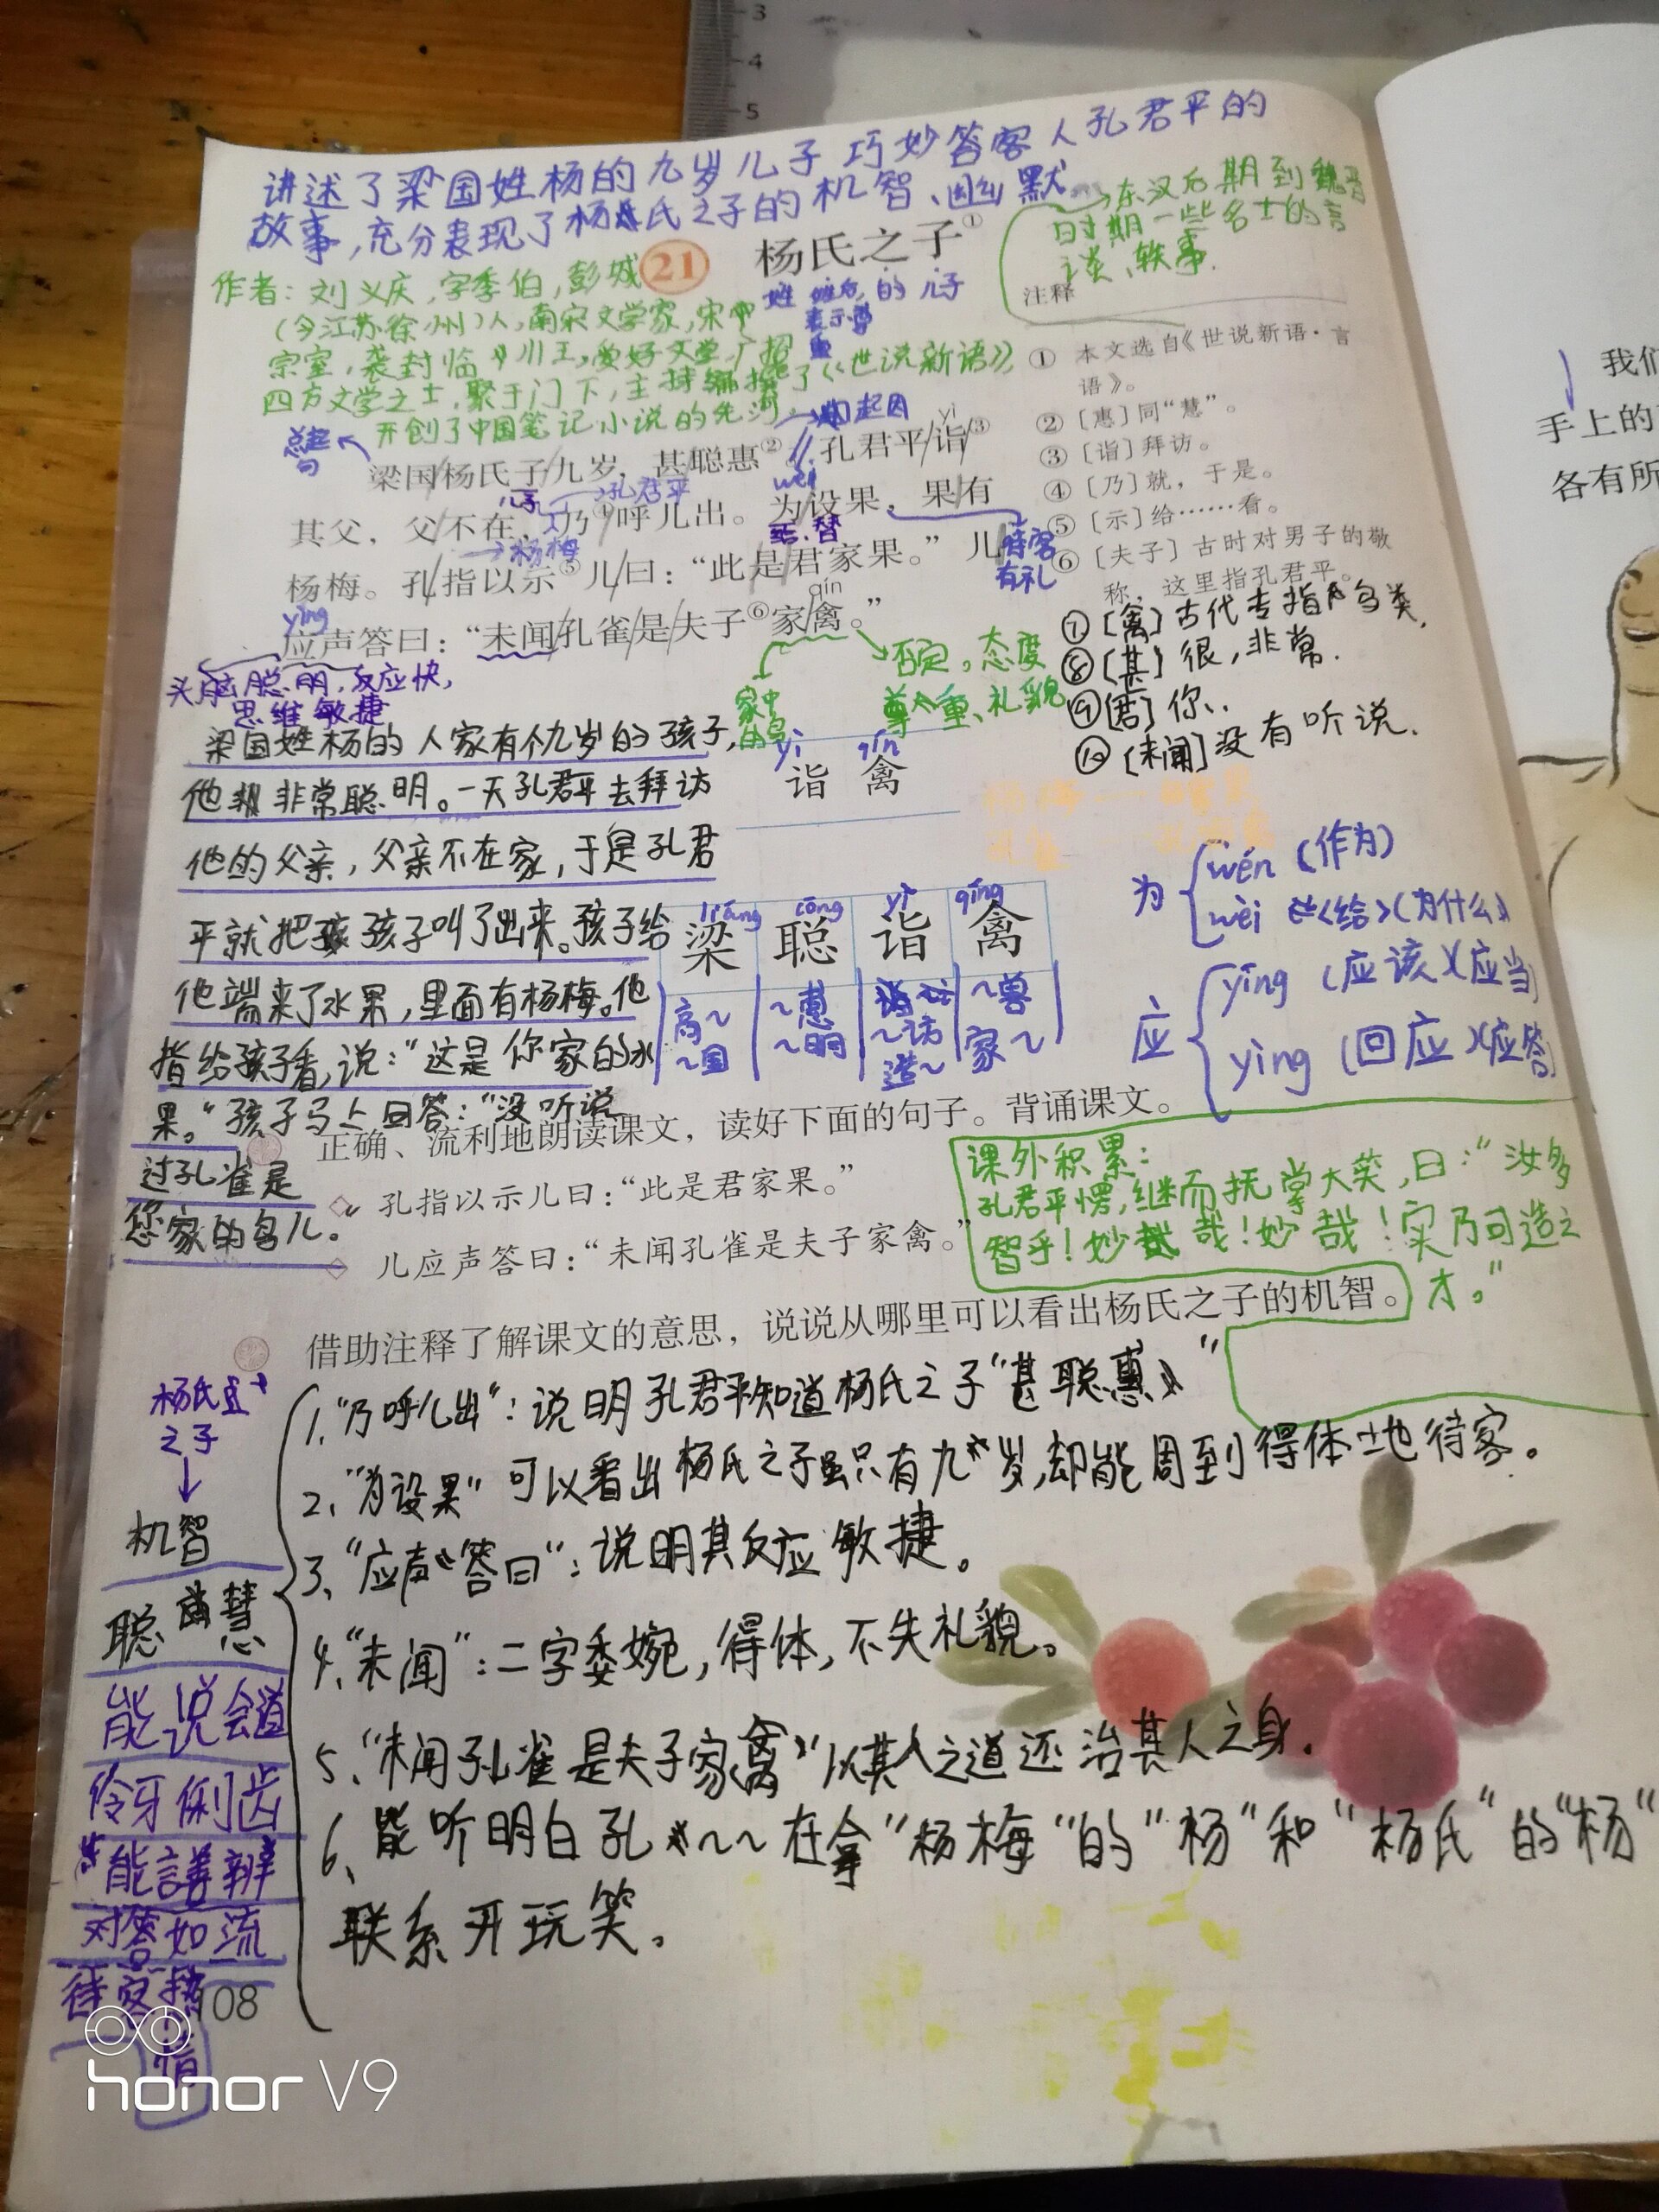 讲述了梁国姓杨的九岁儿子巧妙答客人孔君平的
故事,充分表现了杨氏之子的机智、幽默
东汉后期到魏晋
时期一些名士的言
谈、轶事.
21 杨氏之子①
姓 的 儿子
表示尊
重
作者:刘义庆,字季伯,彭城
(今江苏徐州)人,南宋文学家,宋
宗室,袭封临川王,爱好文学,广招
四方文学之士,聚于门下,主持编撰了《世说新语》
开创了中国笔记小说的先河.
注释
① 本文选自《世说新语·言
语》。
② [惠]同“慧”。
③ [诣]拜访。
④ [乃]就,于是。
⑤ [示]给……看。
⑥ [夫子]古时对男子的敬
称,这里指孔君平。
⑦[禽]古代专指鸟类.
⑧[甚]很,非常.
⑨[君]你.
⑩[未闻]没有听说.
总起
句
起因
yì
梁国/杨氏子/九岁,甚/聪惠②。//孔君平/诣/③
儿子 孔君平 wèi
其父,父/不在,/乃④/呼儿出。为/设果,果/有
杨梅 给.替 待客
有礼
杨梅。孔/指以示⑤/儿/曰:“此是/君家果。”儿/
yìng qín
应声答曰:“未闻/孔雀/是/夫子⑥家/禽。”
头脑聪明,反应快,
思维敏捷
家中
的鸟
否定。态度
尊重、礼貌
梁国姓杨的人家有个九岁的孩子,
他非常聪明。一天孔君平去拜访
他的父亲,父亲不在家,于是孔君
平就把孩子叫了出来。孩子给
他端来了水果,里面有杨梅。他
指给孩子看,说:“这是你家的水
果。”孩子马上回答:“没听说
过孔雀是
您家的鸟儿。”
yì qín
诣 禽
liáng cōng yì qíng
梁 聪 诣 禽
高~ ~惠 ~兽
~国 ~明 ~访 家~
造~
为 wén(作为)
wèi <给>(为什么)
应 yīng(应该)(应当)
yìng(回应)(应答)
正确、流利地朗读课文,读好下面的句子。背诵课文。
◇ 孔指以示儿曰:“此是君家果。”
◇ 儿应声答曰:“未闻孔雀是夫子家禽。”
课外积累:
孔君平愣,继而抚掌大笑,曰:“汝多
智乎!妙哉!妙哉!实乃可造之
才。”
借助注释了解课文的意思,说说从哪里可以看出杨氏之子的机智。
1.“乃呼儿出”:说明孔君平知道杨氏之子“甚聪惠”
2.“为设果”可以看出杨氏之子虽只有九岁,却能周到得体地待客。
3.“应声答曰”:说明其反应敏捷。
4.“未闻”:二字委婉,得体,不失礼貌。
5.“未闻孔雀是夫子家禽”以其人之道还治其人之身.
6.能听明白孔~~在拿“杨梅“的”杨“和“杨氏“的“杨“
联系开玩笑。
杨氏
之子
机智
聪慧
能说会道
伶牙俐齿
能善辨
对答如流
待客热
情
108
honor V9
我们
手上的
各有所
3
4
5